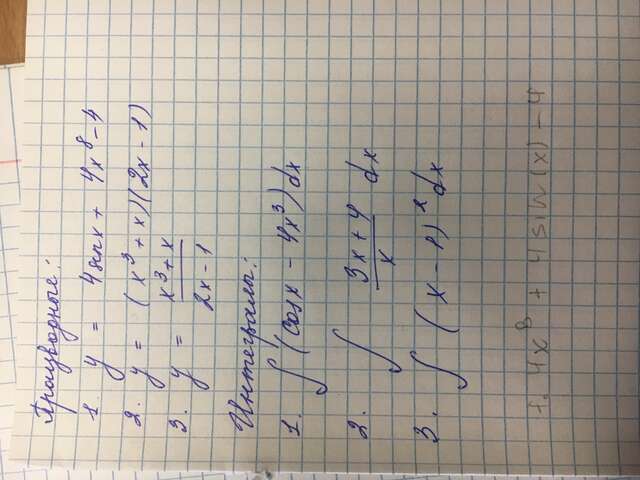 Працводные:
1. y = 4sinx + 4x⁸ - 4
2. y = (x³ + x)(2x - 1)
3. y = (x³ + x)/(2x - 1)
Интегралы:
1. ∫ (cosx - 4x³) dx
2. ∫ (3x + 4)/x dx
3. ∫ (x - 1)² dx
1. 4x⁸ + 4 sin(x) - 4